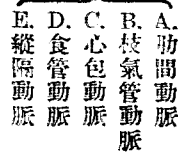 A. 肋間動脈
B. 枝氣管動脈
C. 心包動脈
D. 食管動脈
E. 縱隔動脈